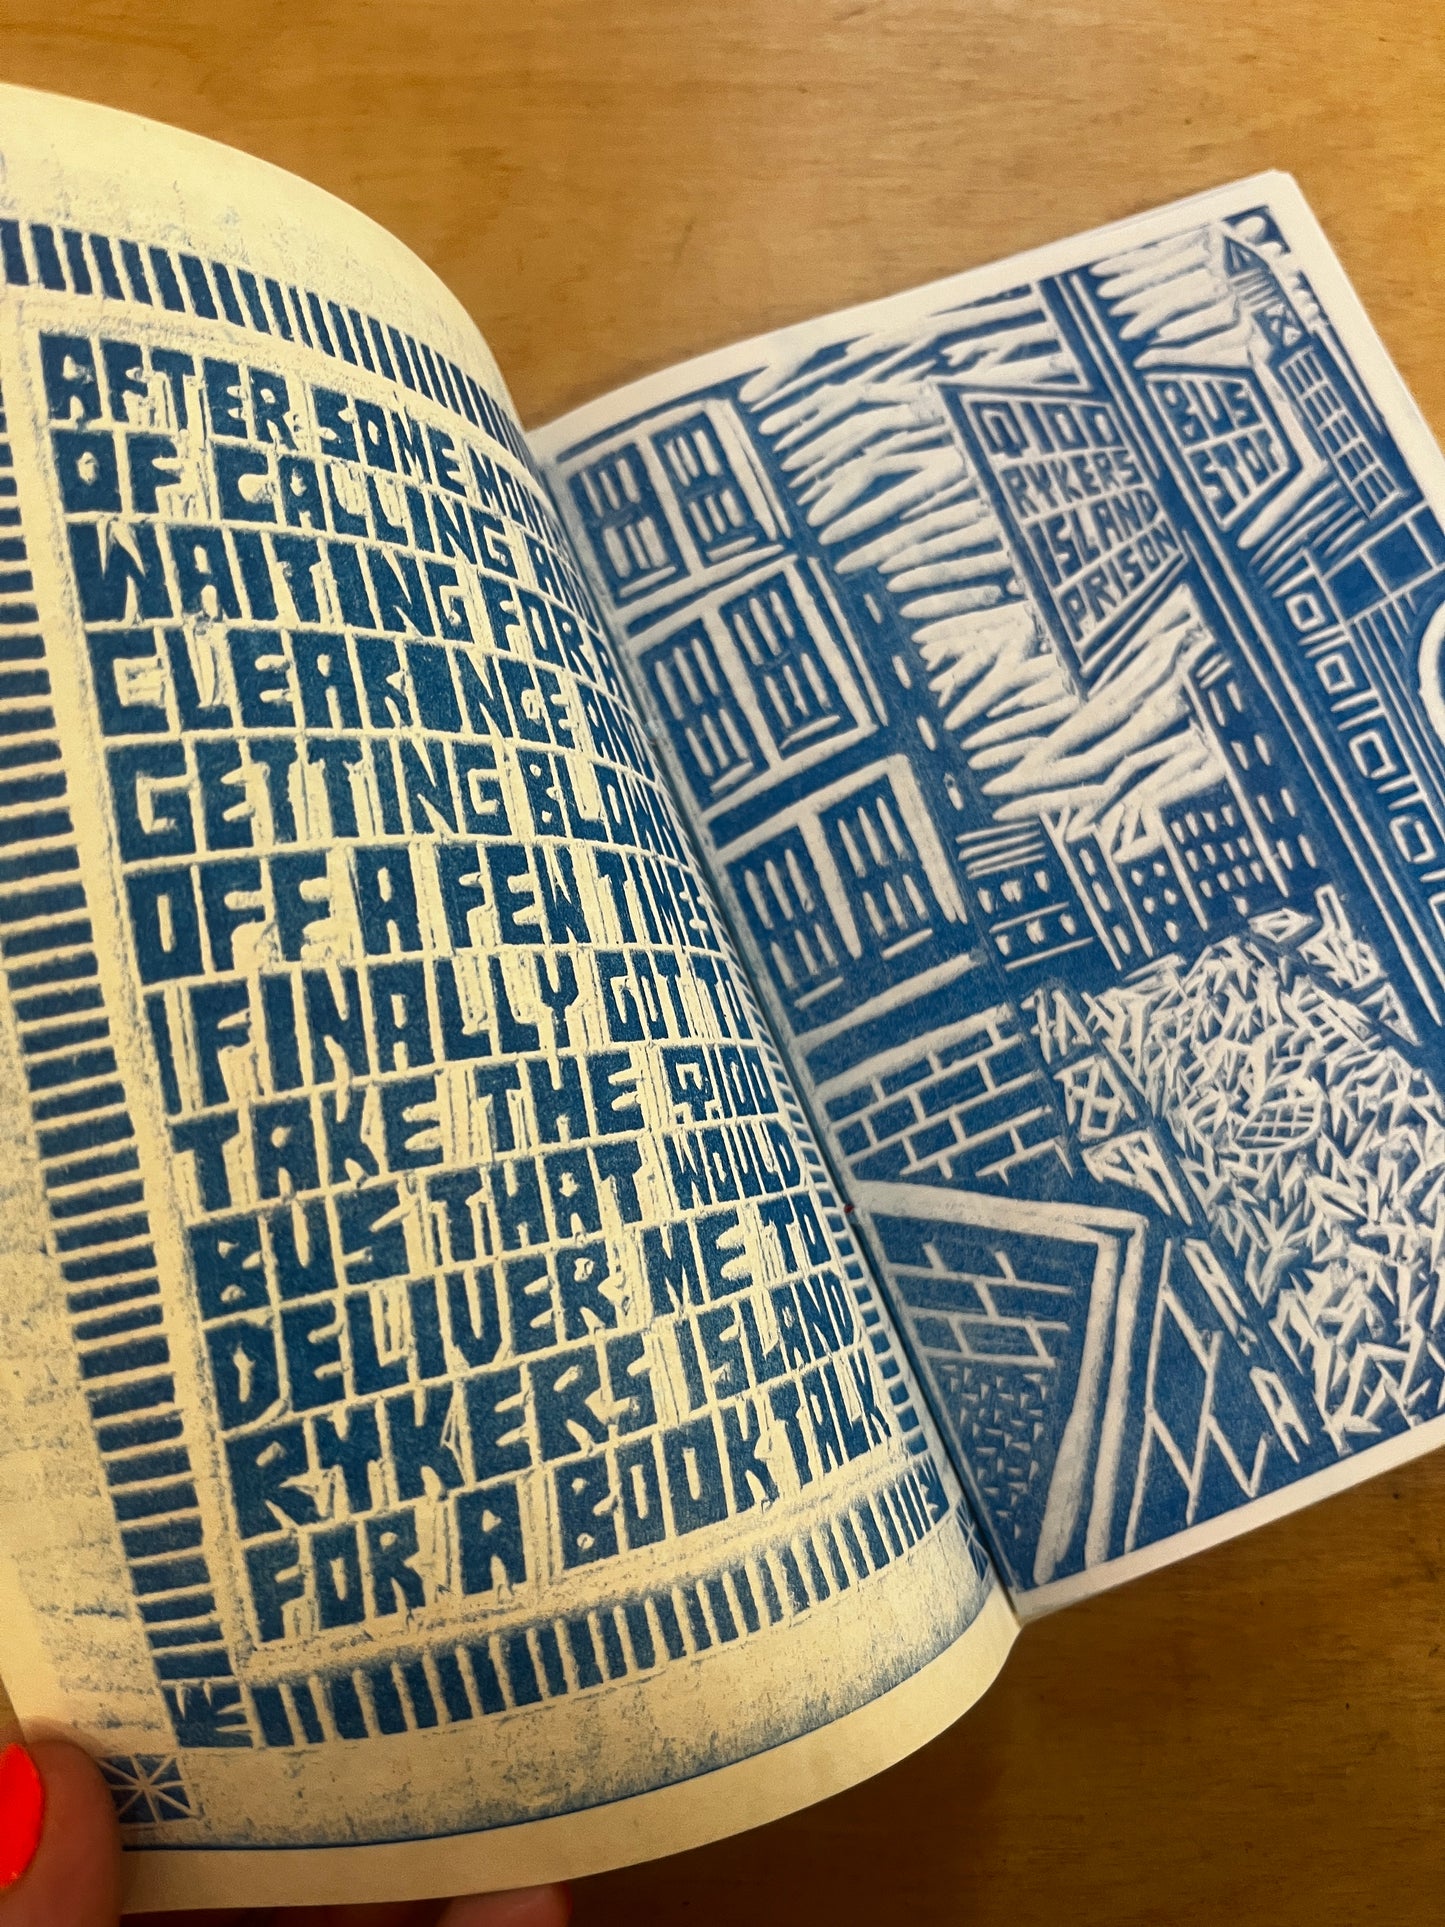 AFTER SOME
OF CALLING
WAITING FOR
CLEARENCE
GETTING BLOWN
OFF A FEW TIMES
I FINALLY GOT TO
TAKE THE Q100
BUS THAT WOULD
DELIVER ME TO
RYKERS ISLAND
FOR A BOOK TALK
Q100
RYKERS
ISLAND
PRISON
BUS
STOP